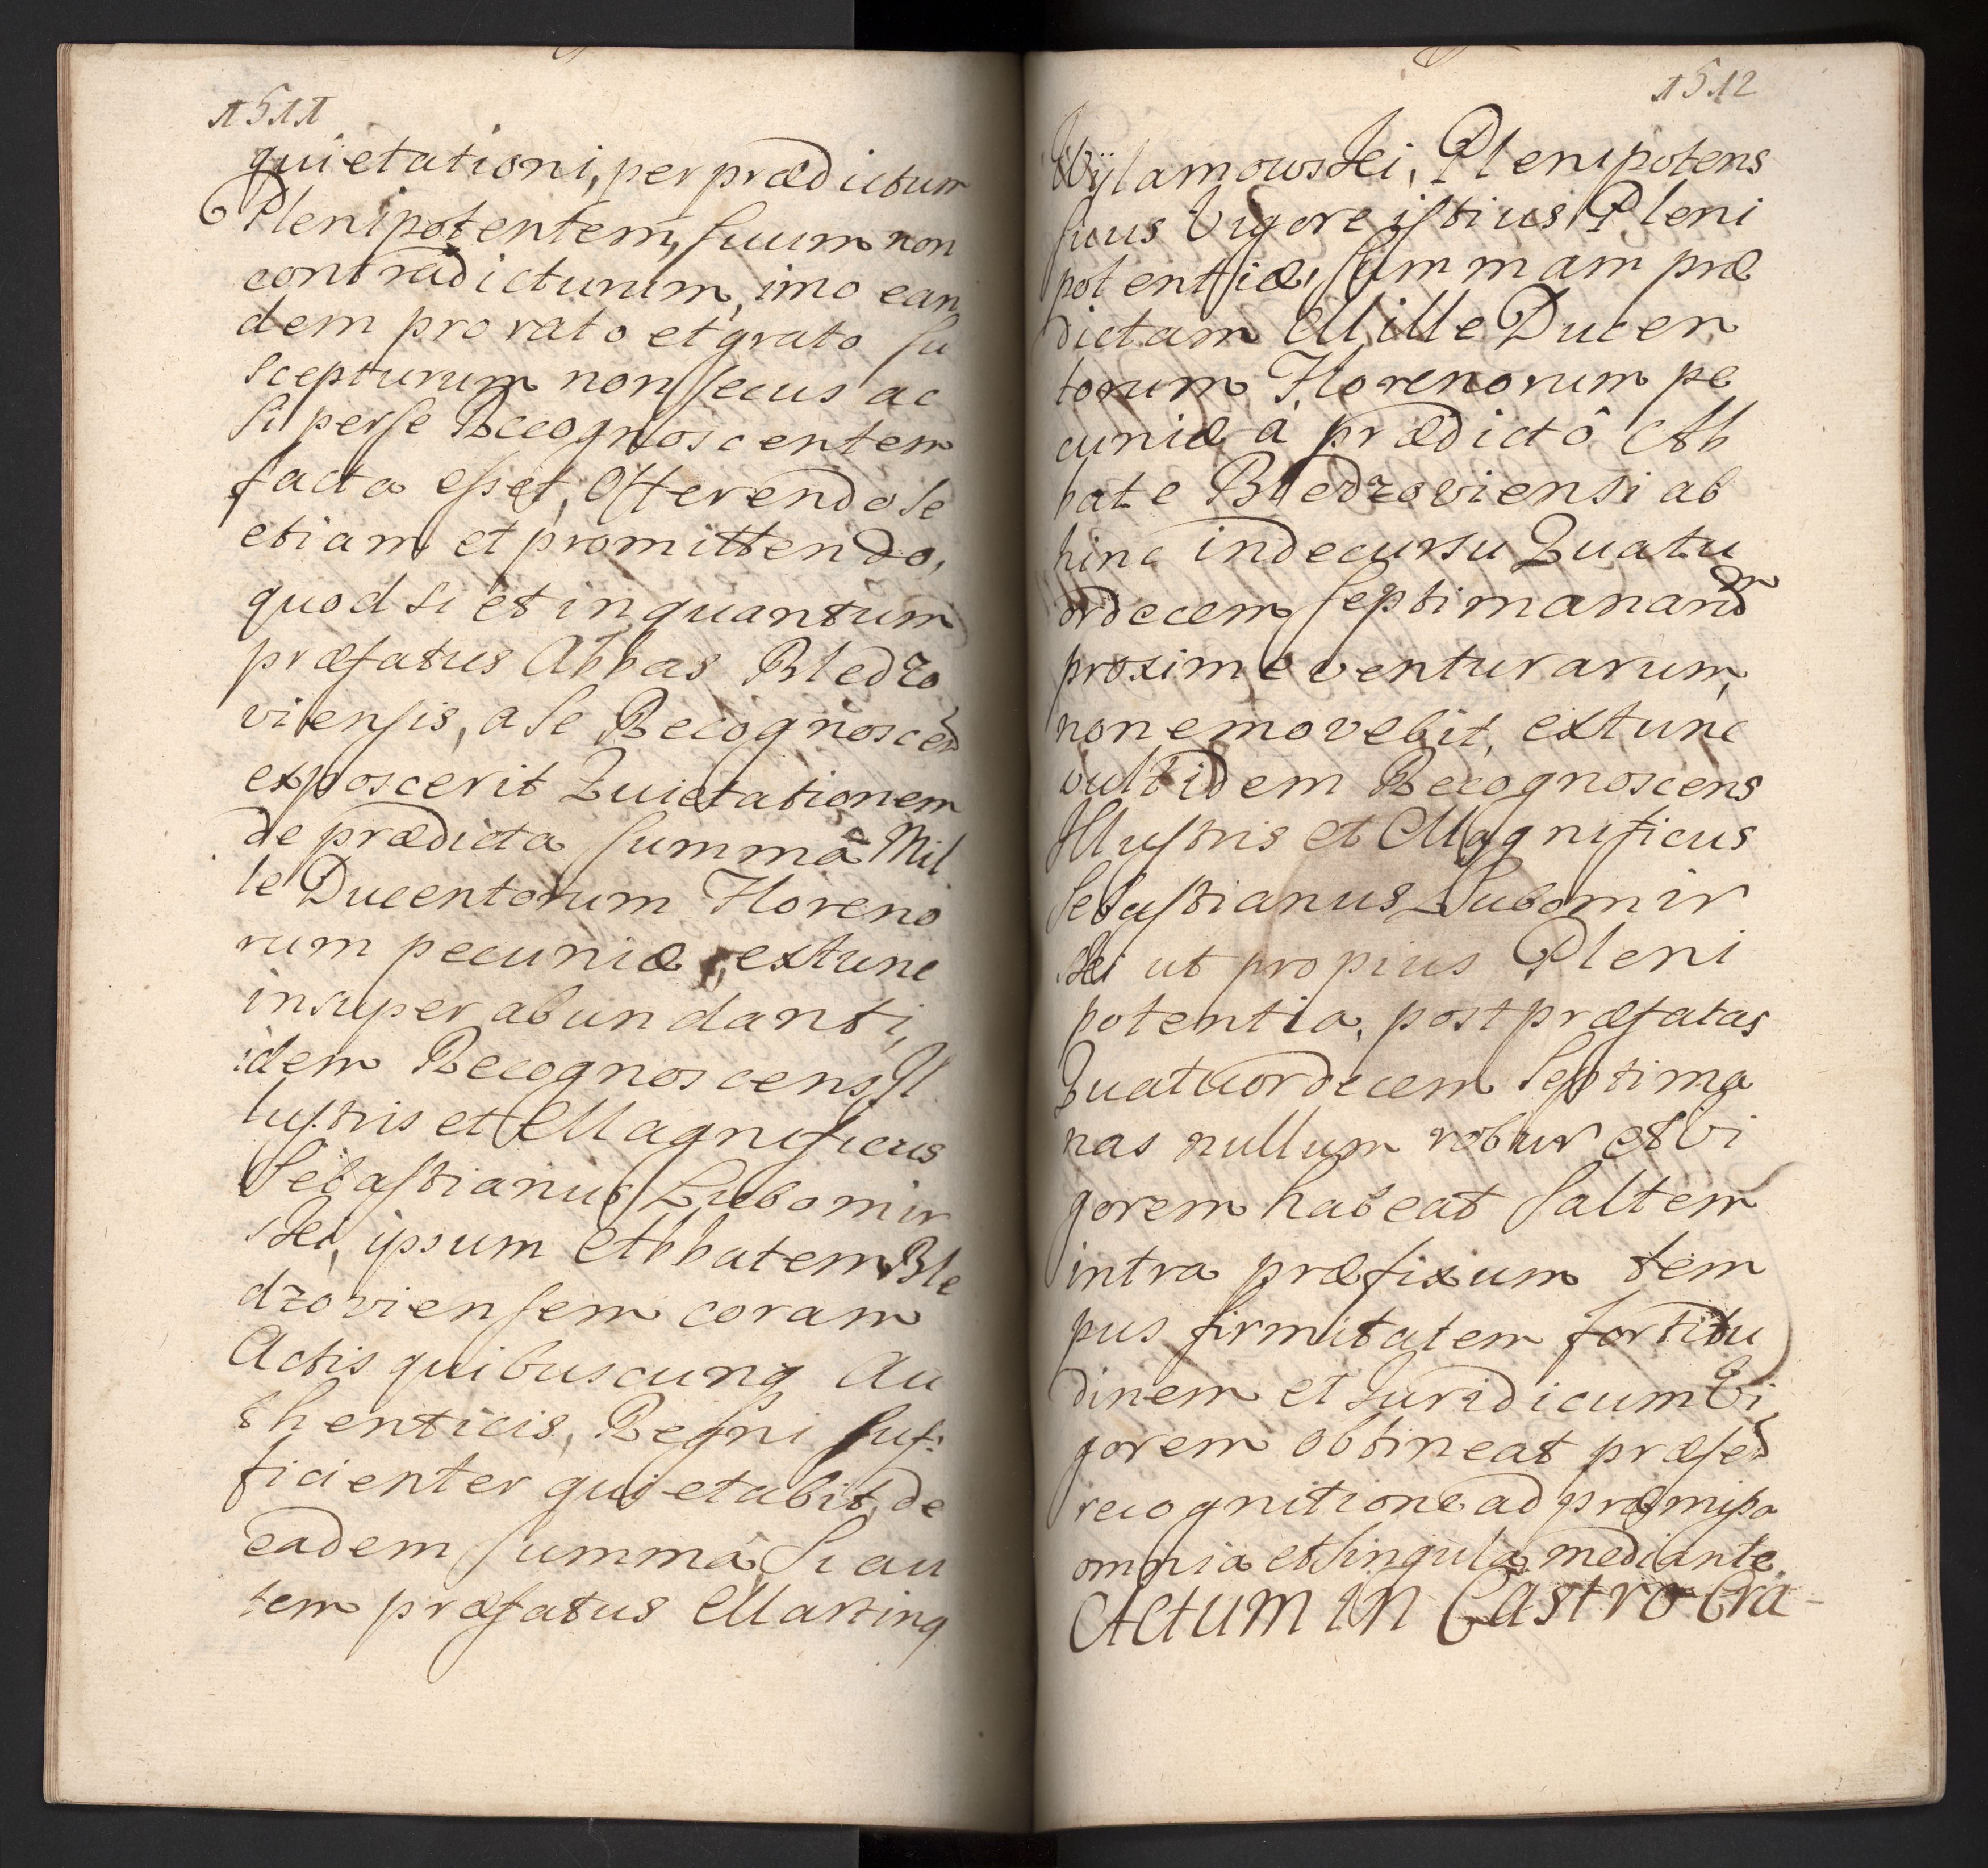 1511
quietationi, per prædictum
Plenipotentem, suum non
contradicturum, imo ean
dem pro rato et grato su
scepturum non secus ac
si per se Recognoscentem
facta esset, Offerendo se
etiam et promittendo,
quod si et inquantum
præfatus Abbas Bledzo
viensis, a se Recognoscen
exposcerit Quietationem
de prædicta summâ Mil
le Ducentorum Floreno
rum pecuniæ, extunc
insuper abundanti,
idem Recognoscens Il
lustris et Magnificus
Sebastianus Lubomir
ski, ipsum Abbatem Ble
dzoviensem coram
Actis quibuscunq Au
thenticis, Regni suf:
ficienter quietabit, de
eadem summâ, Si au
tem præfatus Martinq
1512
Wÿlamowski, Plenipotens
suus Vigore istius Pleni
potentiæ, summam præ
dictam Mille Ducen
torum Florenorum pe
cuniæ â prædictô Ab
bate Bledzoviensi ab
hinc in decursu Quatu
ordecem septimanarum
proxime venturarum,
non emovebit, extunc
vult idem Recognoscens
Illustris et Magnificus
Sebastianus Lubomir
ski ut propius Pleni
potentia, post præfatas
Quatuordecem Septima
nas nullum robur et Vi
gorem habeat saltem
intra præfixum tem
pus firmitatem fortitu
dinem et Juridicum Vi
gorem obtineat præsen
recognitione ad præmissa
omnia et singula mediante
Actum in Castro Cra-